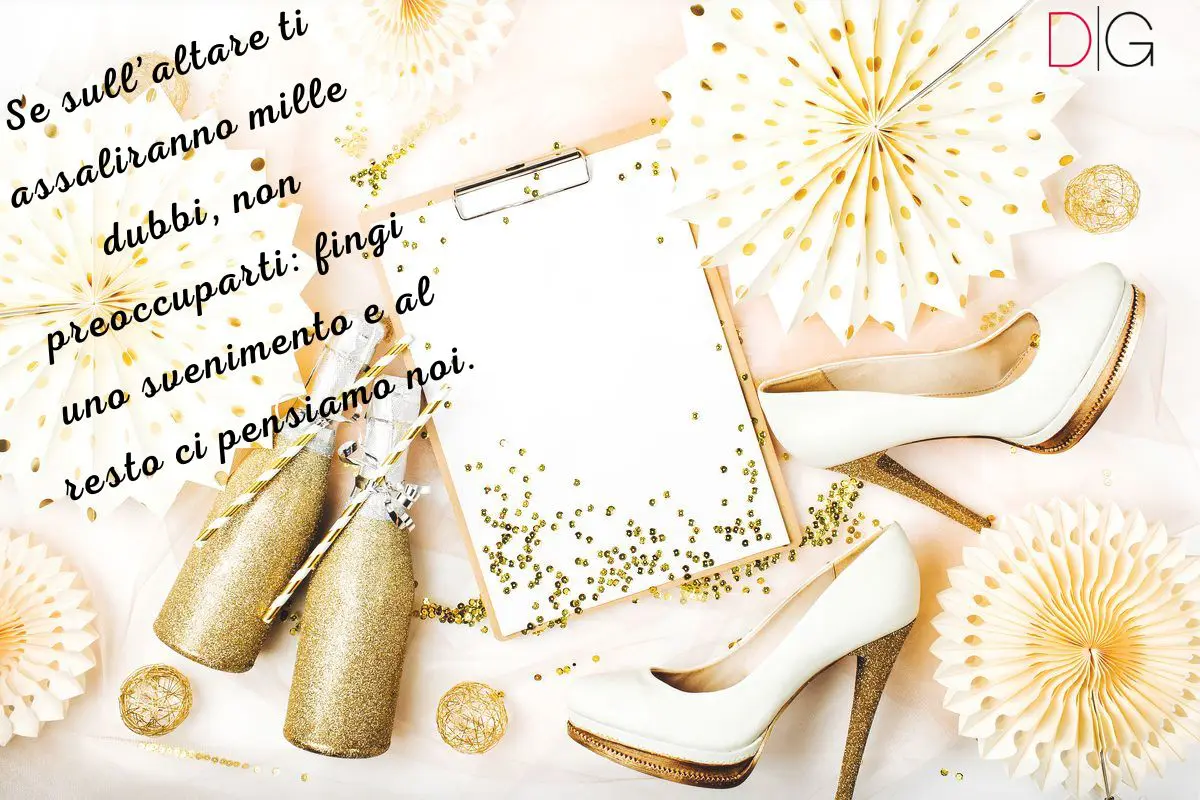 Se sull'altare ti
assaliranno mille
dubbi, non
preoccuparti: fingi
uno svenimento e al
resto ci pensiamo noi.
D|G